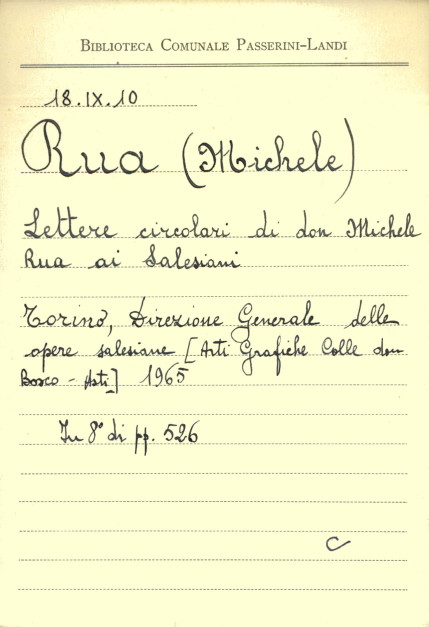 BIBLIOTECA COMUNALE PASSERINI-LANDI
18.IX.10
Rua (Michele)
Lettere circolari di don Michele
Rua ai Salesiani
Torino, Direzione Generale delle
opere salesiane [Arti Grafiche Colle don
Bosco - Asti] 1965
In 8° di pp. 526
C